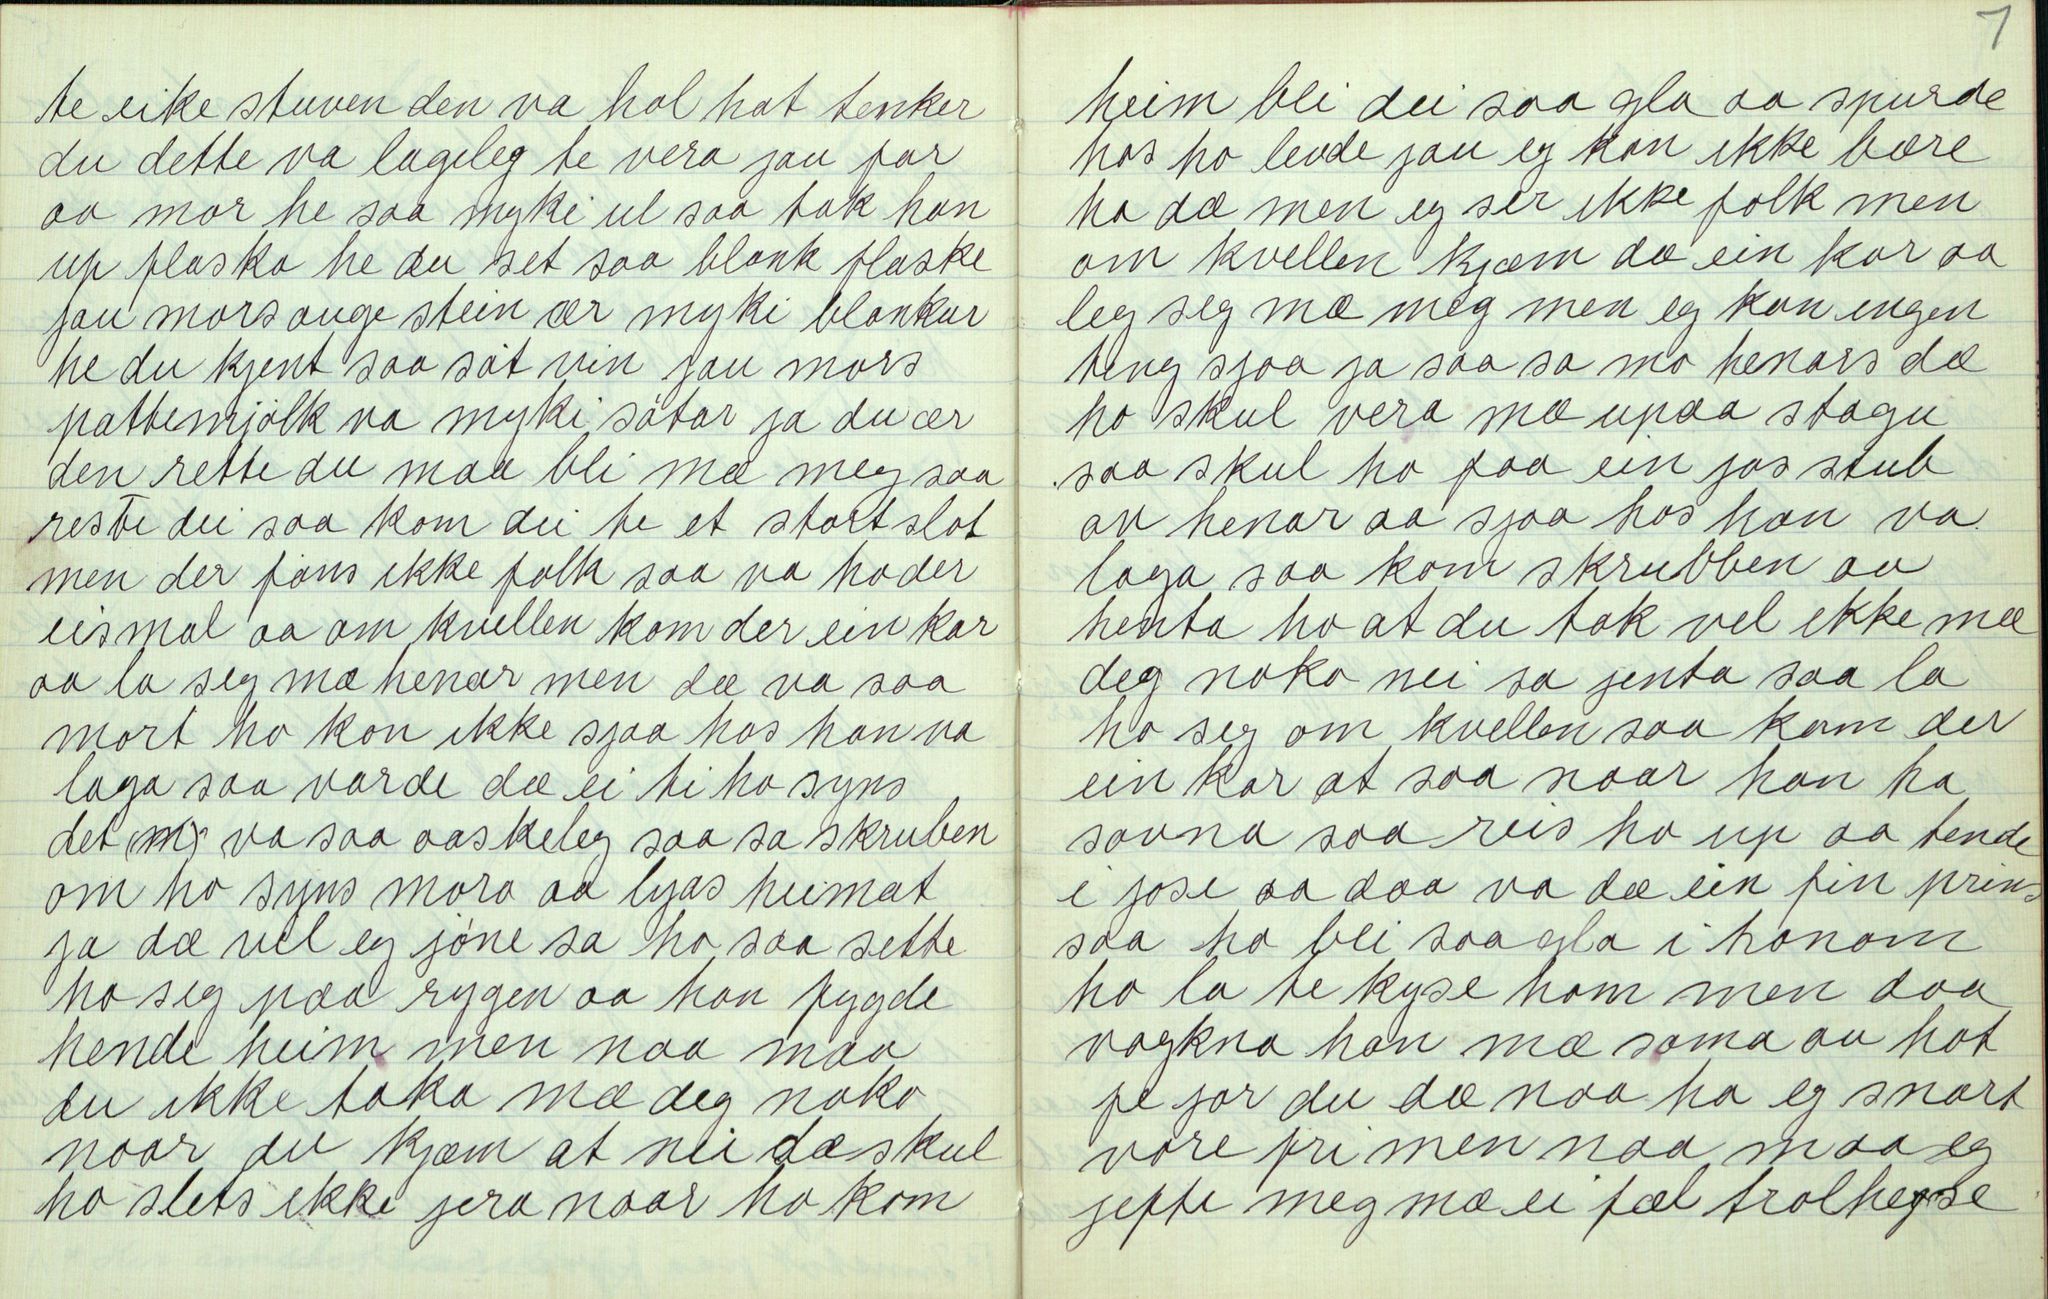 te eike stuven den va hol hat tenker
du dette va lageleg te vera jau far
aa mor he saa myki ul saa tok han
up flaska he du set saa blank flaske
jau mors auge stein ær myki blankur
he du kjent saa söt vin jau mors
pattemjölk va myki sötar ja du ær
den rette du maa bli mæ meg saa
reste dei saa kom dei te et stort slot
men der föns ikke folk saa va ho der
eismal aa om kvellen kom der ein kar
aa la seg mæ henar men dæ va saa
mort ho kon ikke sjaa hos han va
laga saa varde dæ ei ti ho syns
det va saa aaskeleg saa sa skruben
om ho syns mora aa lyas heimat
ja dæ vil eg jöne sa ho saa sette
ho seg paa rygen aa han fygde
hende heim men naa maa
du ikke taka mæ deg noko
naar du kjæm at nei dæ skul
ho slets ikke jera naar ho kom
7
heim blei dei saa gla aa spurde
hos ho levde jau eg kan ikke bære
ha dæ men eg ser ikke folk men
om kvellen kjæm dæ ein kar aa
leg seg mæ meg men eg kan engen
teng sjaa ja saa sa mo henars dæ
ho skul vera mæ upaa stagu
saa skul ho faa ein jos stub
av henar aa sjaa hos han va
laga saa kom skrubben aa
henta ho at du tok vel ikke mæ
deg noko nei sa jenta saa la
ho seg om kvellen saa kom der
ein kar at saa naar han ha
sovna saa reis ho up aa tende
i jose aa daa va dæ ein fin prins
saa ho blei saa gla i honom
ho la te kyse hom men daa
vagkna han mæ sama au hot
fe jor du dæ naa ha eg snart
vore fri men naa maa eg
jefte meg mæ ei fæl trolhegse